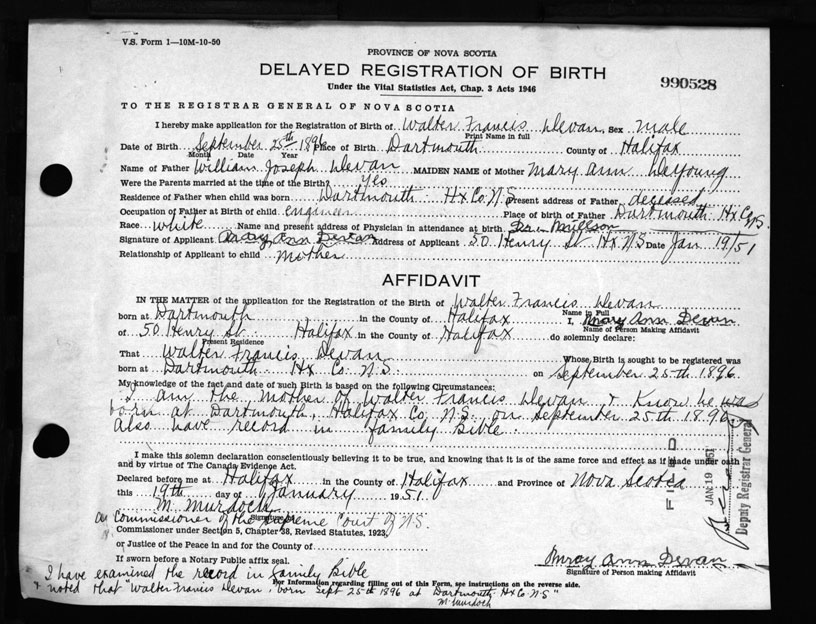 V.S. Form 1—10M-10-50
PROVINCE OF NOVA SCOTIA
DELAYED REGISTRATION OF BIRTH
990528
Under the Vital Statistics Act, Chap. 3 Acts 1946
TO THE REGISTRAR GENERAL OF NOVA SCOTIA
I hereby make application for the Registration of Birth of Walter Francis Devan, Sex Male
Print Name in full
Date of Birth September 25th 1896 Place of Birth Dartmouth County of Halifax
Month Date Year
Name of Father William Joseph Devan MAIDEN NAME of Mother Mary Ann DeYoung
Were the Parents married at the time of the Birth? Yes
Residence of Father when child was born Dartmouth Hx Co. N.S. Present address of Father deceased
Occupation of Father at Birth of child engineer Place of birth of Father Dartmouth Hx Co N.S.
Race White Name and present address of Physician in attendance at birth Millson
Signature of Applicant Mary Ann Devan Address of Applicant 50 Henry St Hx N.S Date Jan 19/51
Relationship of Applicant to child Mother
AFFIDAVIT
IN THE MATTER of the application for the Registration of Birth of Walter Francis Devan
Name in Full
born at Dartmouth in the County of Halifax I, Mary Ann Devan
Name of Person Making Affidavit
of 50 Henry St. Halifax in the County of Halifax do solemnly declare:
Present Residence
That Walter Francis Devan Whose Birth is sought to be registered was
born at Dartmouth Hx Co. N.S. on September 25th 1896
My knowledge of the fact and date of such Birth is based on the following Circumstances:
I am the mother of Walter Francis Devan, & know he was
born at Dartmouth, Halifax Co, N.S. on September 25th 1896
Also have record in family Bible.
I make this solemn declaration conscientiously believing it to be true, and knowing that it is of the same force and effect as if made under oath
and by virtue of The Canada Evidence Act.
Declared before me at Halifax in the County of Halifax and Province of Nova Scotia
this 19th day of January 1951.
M. Murdoch
Signature of
A Commissioner of the Supreme Court of N.S.
Commissioner under Section 5, Chapter 38, Revised Statutes, 1923,
or Justice of the Peace in and for the County of
If sworn before a Notary Public affix seal.
Mary Ann Devan
Signature of Person making Affidavit
FILED
JAN 19 1951
Deputy Registrar General
For Information regarding filling out of this Form, see instructions on the reverse side.
I have examined the record in family Bible
& noted that "Walter Francis Devan, born Sept 25th 1896 at Dartmouth, Hx Co. N.S"
M. Murdoch